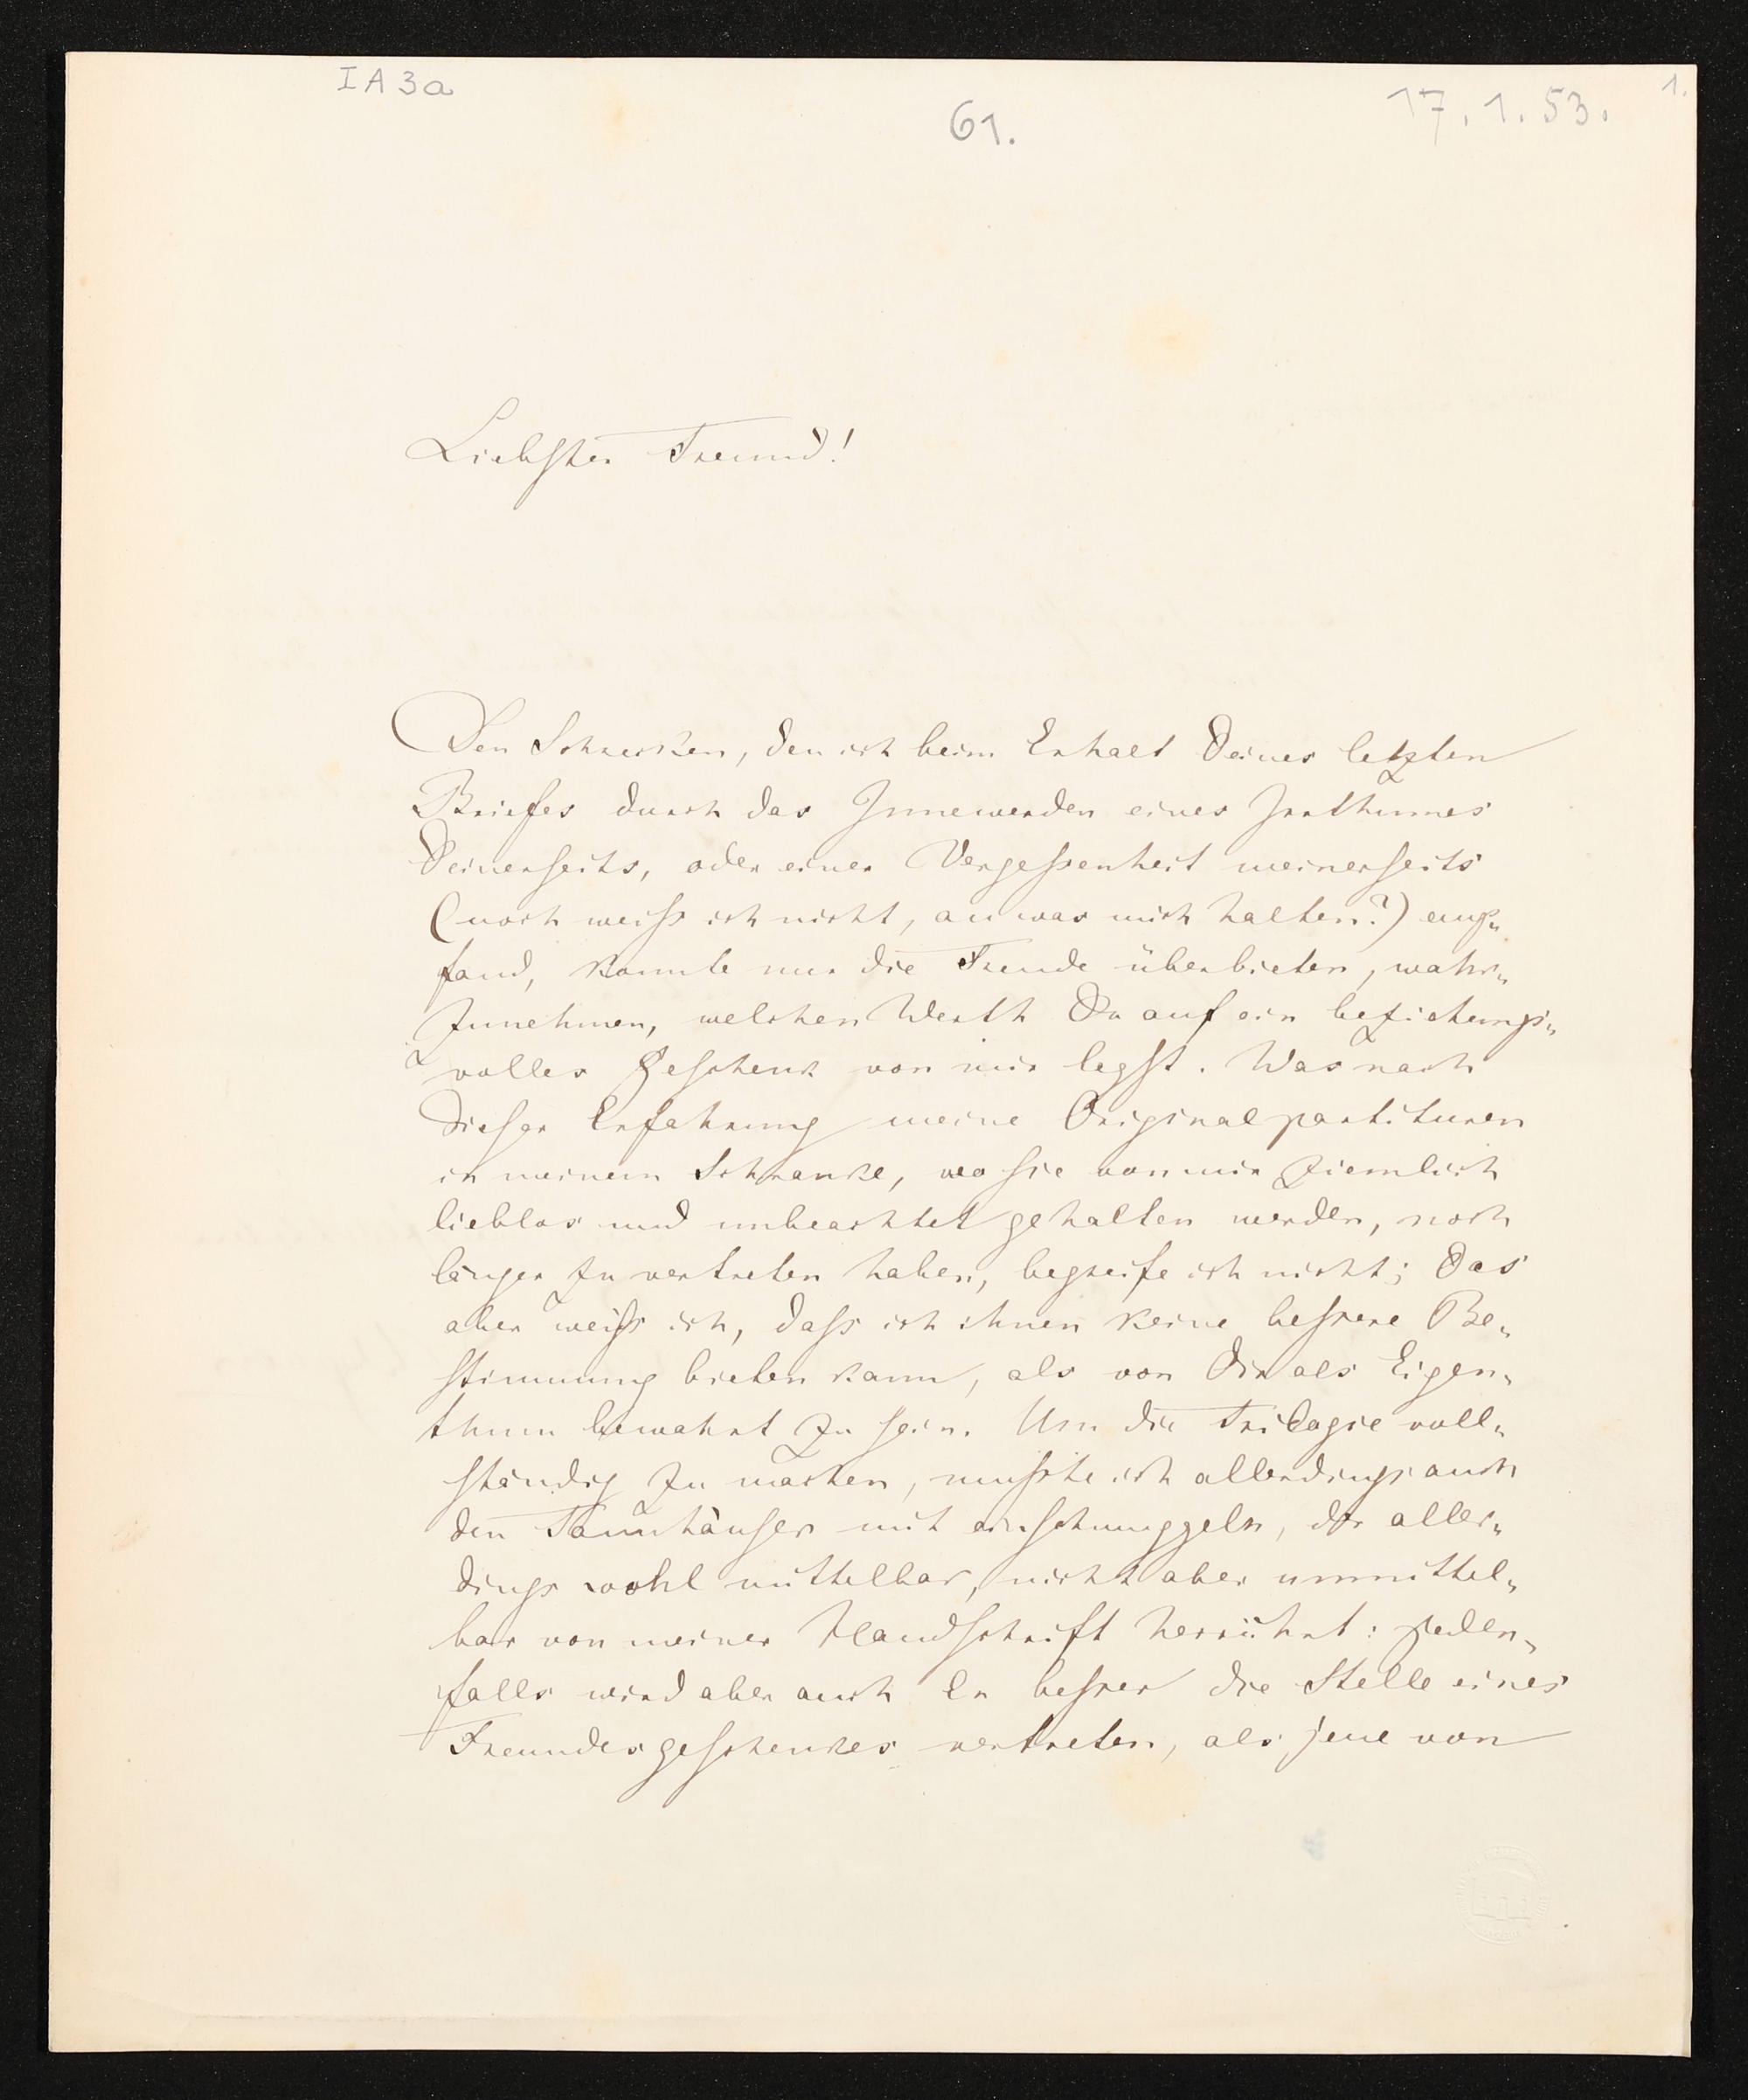 IA3a
61.
17.1.53.
1.
Liebster Freund!
Den Schrecken, den ich beim Erhalt Deines letzten
Briefes durch das Innewerden eines Irrthumes
Deinerseits, oder einer Vergeßenheit meinerseits
(noch weiss ich nicht, an was mich halten?) emp„
fand, konnte nur die Freude überbieten, wahr„
zunehmen, welchen Werth Du auf ein beziehungs„
volles Geschenk von mir legst. Was nach
dieser Erfahrung meine Originalpartituren
in meinem Schranke, wo sie von mir ziemlich
lieblos und unbeachtet gehalten werden, noch
länger zu vertreten haben, begreife ich nicht; das
aber weiss ich, dass ich ihnen keine bessere Be„
stimmung bieten kann, als von Dir als Eigen„
thum bewahrt zu sein. Um die Trilogie voll„
ständig zu machen, musste ich allerdings auch
den Tannhäuser mit einschmuggeln, der aller„
dings wohl mittelbar, nicht aber unmittel„
bar von meiner Handschrift herrührt: jeden„
falls wird aber auch Er besser die Stelle eines
Freundesgeschenkes vertreten, als jene von